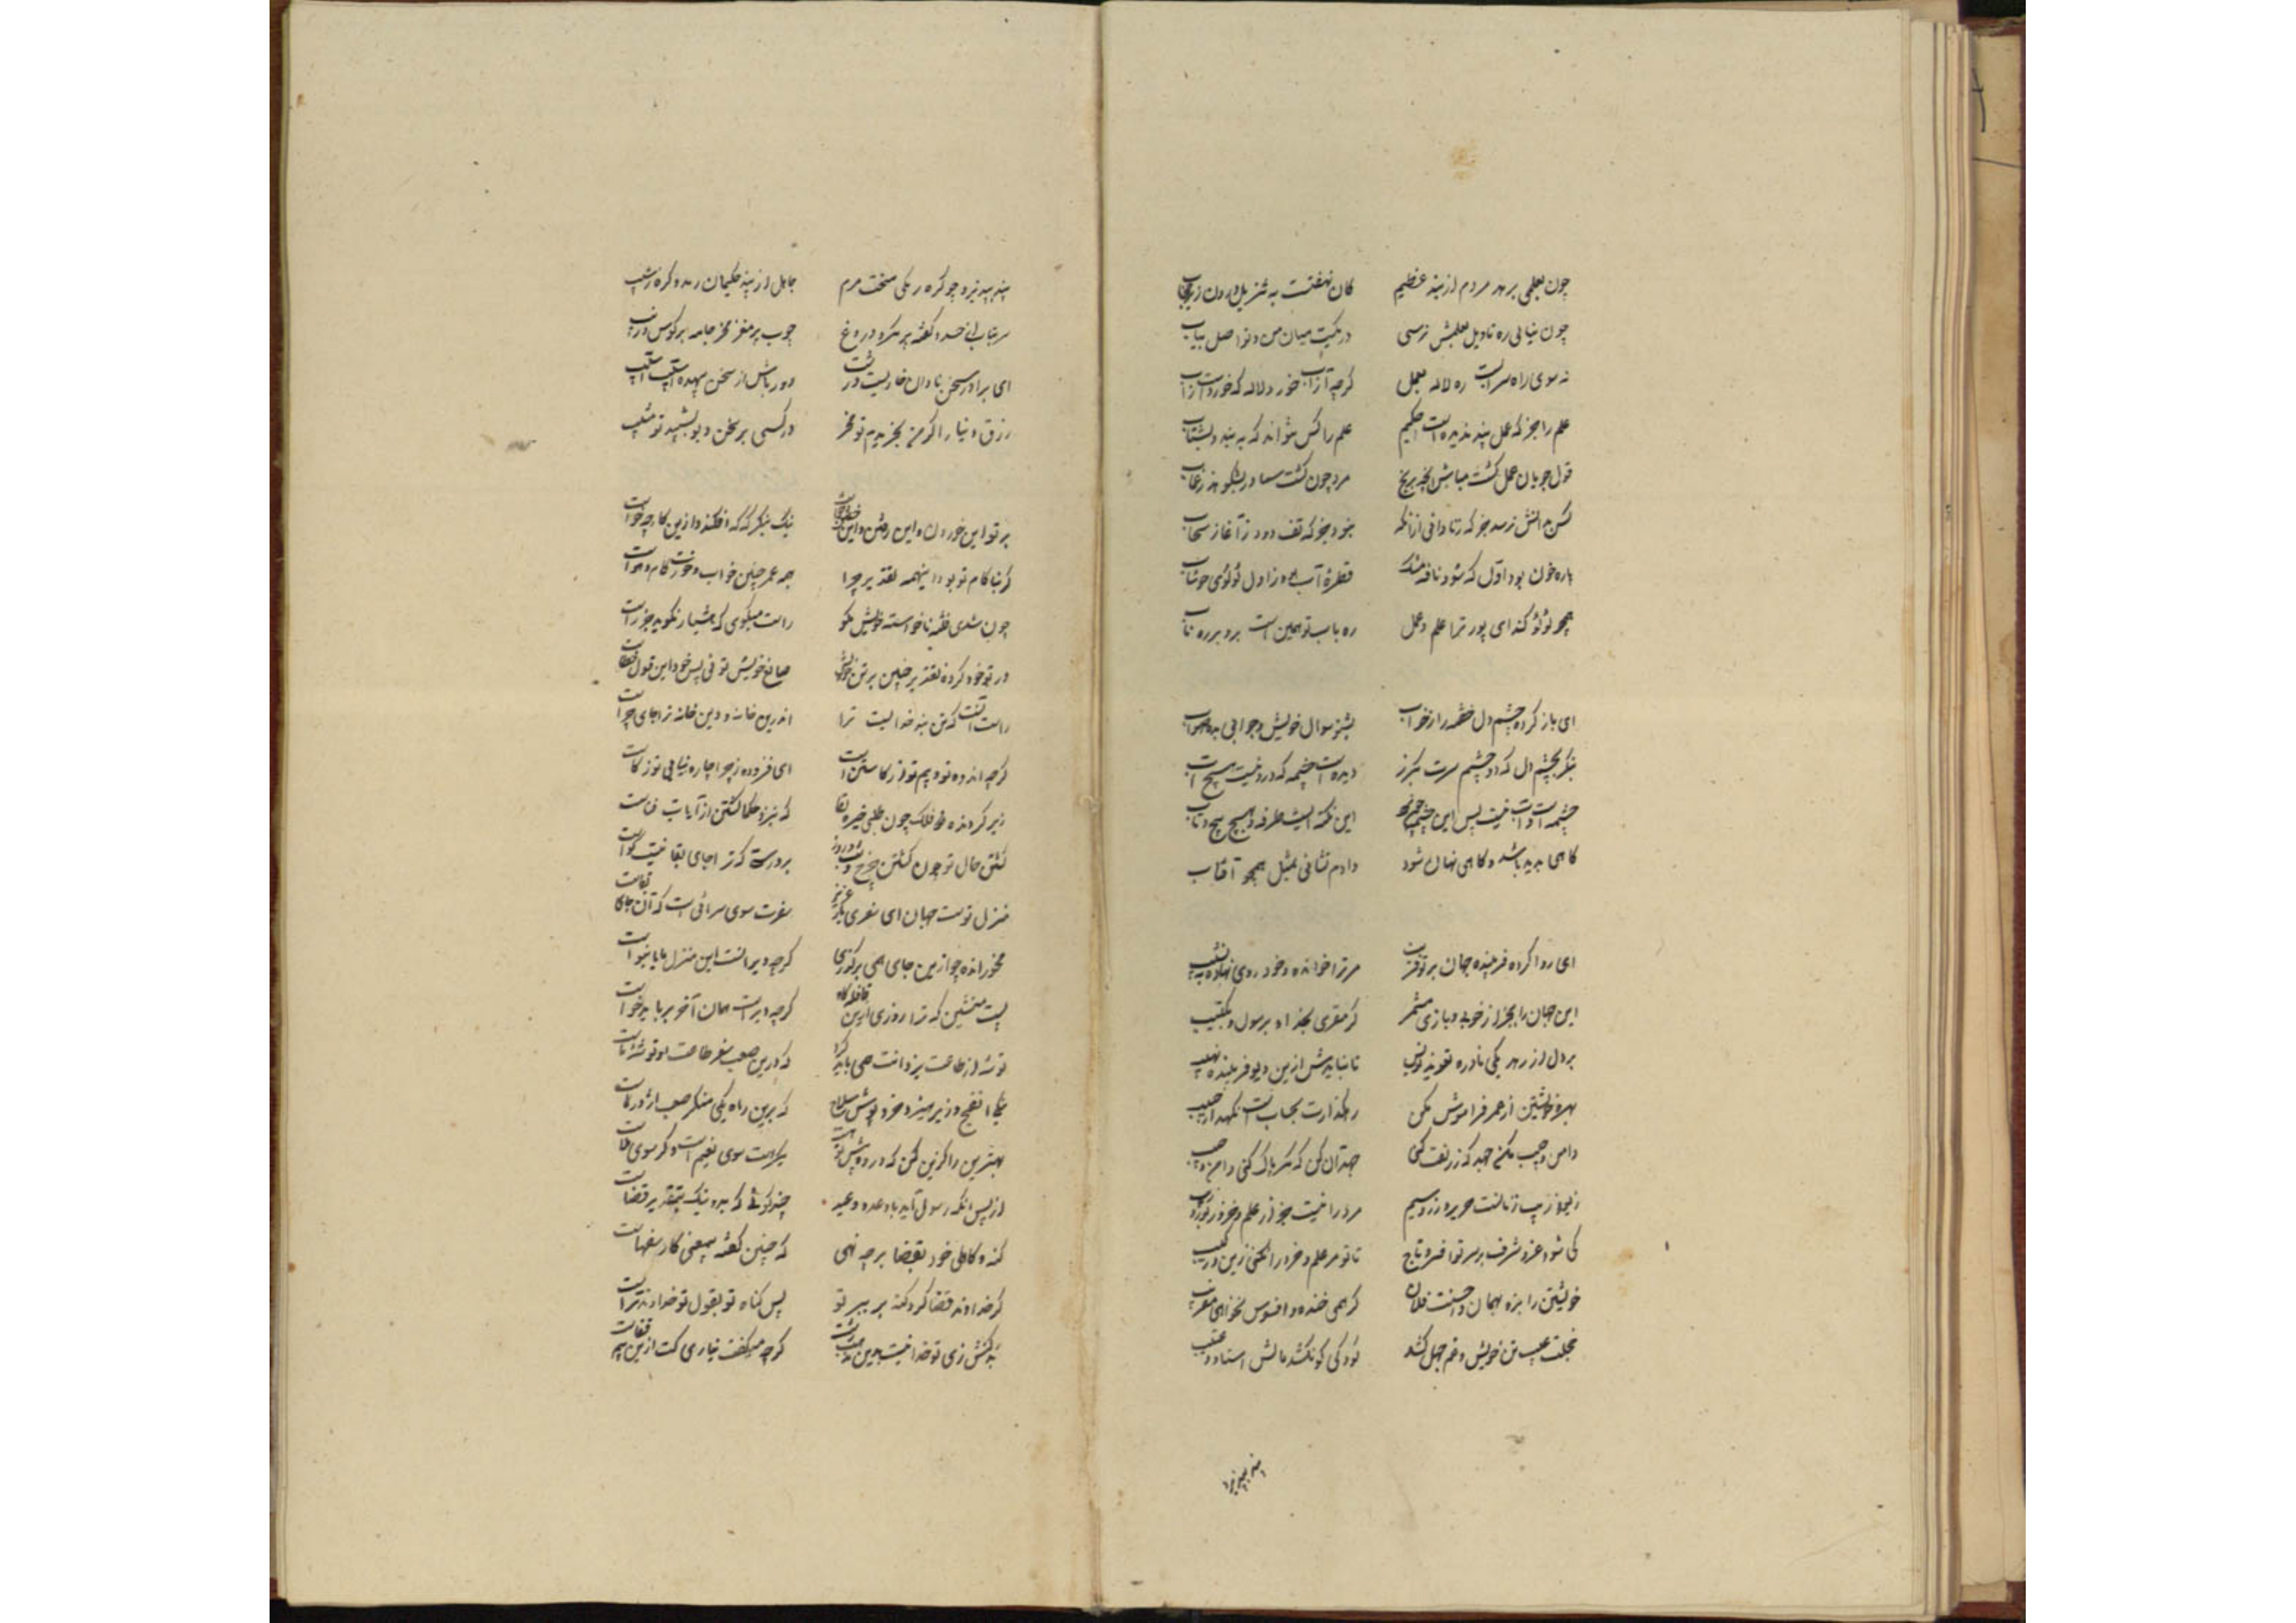 چون بعلمی برهد مردم ازین بند عظیم کان نهفتست به تنزیل درون زیر حجاب
چون نیابی ره تاویل بعلمش نرسی در یکیست میان من و تو اصل بیاب
نه سوی راه سرابست ره لاله بعمل گرچه آزاب خورد لاله که خوردست از آب
علم را جز که عمل بند ندیدست حکیم علم را کس نتواند که به بندد بشتاب
قول چون یار عمل گشت مباش ایچ بریخ مرد چون گشت شناور نشکوهد ز غباب
کس بدانش نرسد جز که ز نادانی ازانک نبود جز که تف و دود ز آغاز سحاب
پاره خون بود اول که شود نافه مشک قطره آب بود ز اول لؤلؤی خوشاب
همچو لؤلؤ کند ای پور ترا علم و عمل ره باب تو همین است برو بر ره تاب
ای باز کرده چشم دل خفته را ز خواب بشنو سوال خویش و جوابی بده صواب
بنگر بچشم دل که دو چشم سرت هرگز دیدست چشمه که درو نیست هیچ آب
چشمه است و آب نیست پس این چشمه چون بود این نکته ایست طرفه و بی هیچ پیچ و تاب
گاهی پدید باشد و گاهی نهان شود دادم نشانی بمثل همچو آفتاب
ای روا کرده فریبنده جهان بر تو فریب مر ترا خوانده و خود روی نهاده به نشیب
این جهان را بجز از خوابی و بازی مشمر گر مقری بخداو برسول و بکتیب
بر دل از زهد یکی نادره تعویذ نویس تا نیایدش ازین دیو فریبنده نهیب
بهره خویشتن از عمر فراموش مکن رهگذارت بحساب است نگهدار حسیب
دامن و جیب مکن جهد که زربفت کنی جهد آن کن که مگر پاک کنی دامن و جیب
زیور و زیب زنانست حریر و زر و سیم مرد را نیست جز از علم و خرد زیور و زیب
کی شود عز و شرف بر سر تو افسر و تاج تا تو مر علم و خرد را نکنی زین و رکیب
خویشتن را بزه بهمان و احسنت فلان گر همی خنده و افسوس نخواهی مفریب
خجلت عیب تن خویش و غم جهل کشد کودکی کو نکشد مالش استاد و ادیب
پند بپذیرد
پند بپذیر و چو کره رمکی سخت مرم جاهل از پند حکیمان رمد و کره ز شیب
سر بتاب از حسد و گفته پر مکر و دروغ چوب پر مغز مخر جامه پر کوس و اریب
ای برادر سخن نادان خاریست درشت دور باش از سخن بیهده آسیب آسیب
رزق دنیا را گر من بخریدم تو مخر ور کسی بر سخن دیو بشیبد تو مشیب
بر تو این خوردن و این رفتن و این خفتن و خاست نیک بنگر که که افکند وزین کار چه خواست
گر بناکام تو بود این همه تقدیر چرا همه عمر چنین خواب و خورت کام و هواست
چون شدی فتنه ناخواسته خویش بگو راست میگوی که هشیار نگوید جز راست
ور تو خود کرده تقدیر چنین بر تن خویش صانع خویش توئی پس خود و این قول خطاست
راست آنست که تن بند خدایست ترا اندرین خانه و دین خانه ترا جای چراست
گرچه اندوه تو و بیم تو از کاستن است ای فزوده ز چرا چاره نیابی تو ز کاست
زیر گردنده فلک چون طلبی خیره بقا که به نزد حکما گشتن از آیات فناست
گشتن حال تو چون گشتن چرخ و شب و روز بر درستی که ترا جای بقا نیست گواست
منزل تست جهان ای سفری یار عزیز سفرت سوی سرائیست که آن جای بقاست
مخور اندوه چو ازین جای همی برگذری گرچه ویرانست این منزل یا با نیواست
پست منشین که ترا روزی ازین قافله گاه گرچه دیر است همان آخر بر باید خاست
توشه از طاعت یزدانت همی باید کرد که درین صعب سفر طاعت او توشه ماست
نیکی الفنج و ز پرهیز و خرد پوش سلاح که برین راه یکی منکر صعب اژدرهاست
بهترین را گزین کن که دو ره پیش تو است یک رهت سوی نعیم است و دگر سوی بلاست
از پس آنکه رسول آید با وعده و وعید چند گوئی که بد و نیک بتقدیر قضاست
گنه و کاهلی خود بقضا برچه نهی که چنین گفته بیمعنی کار سفهاست
گر خداوند قضا کرد گنه بر سر تو پس گناه تو بقول تو خداوند تراست
بد کنش زی تو خدایست بدین مذهب زشت گرچه میگفت نیاری کت ازین بیم قفاست